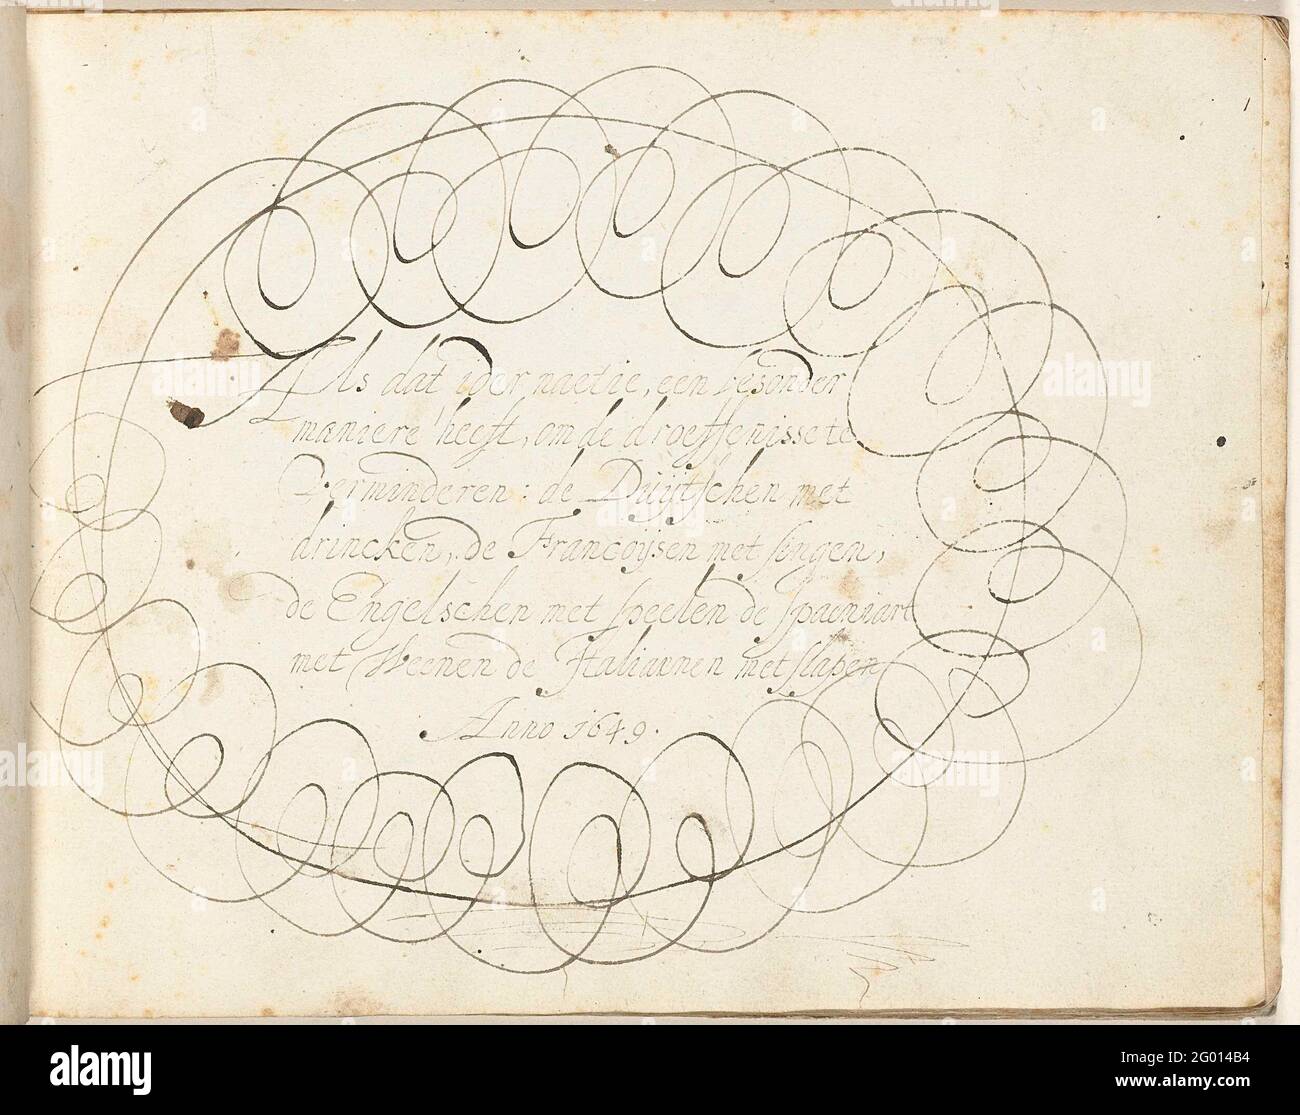 1
Als dat ider naetie, een besonder
maniere heeft, om de droeffenisse te
Verminderen : de Duijtschen met
drincken, de Francoijsen met singen,
de Engelschen met speelen de Spaeniart
met Weenen de Italiaenen met slapen
Anno 1649.
alamy
Image ID: 2G014B4
www.alamy.com